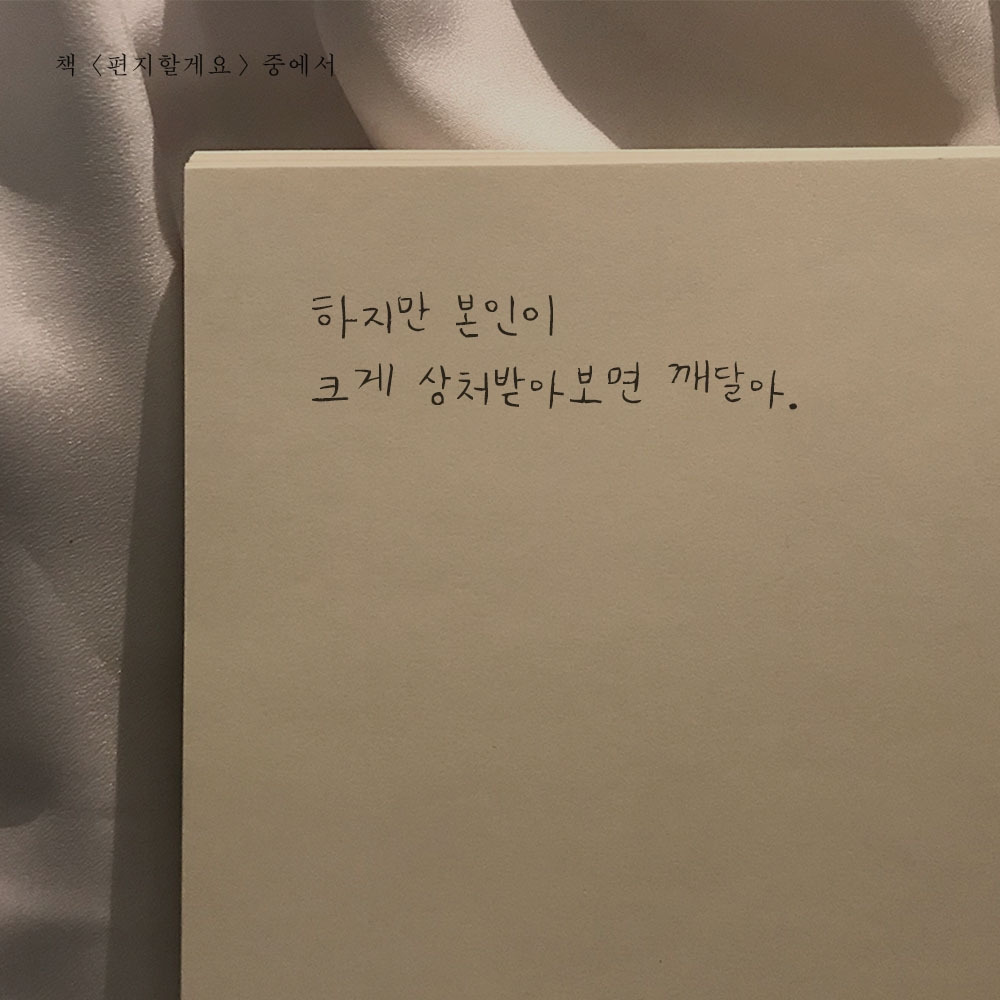 책 〈편지할게요〉 중에서
하지만 본인이
크게 상처받아보면 깨달아.